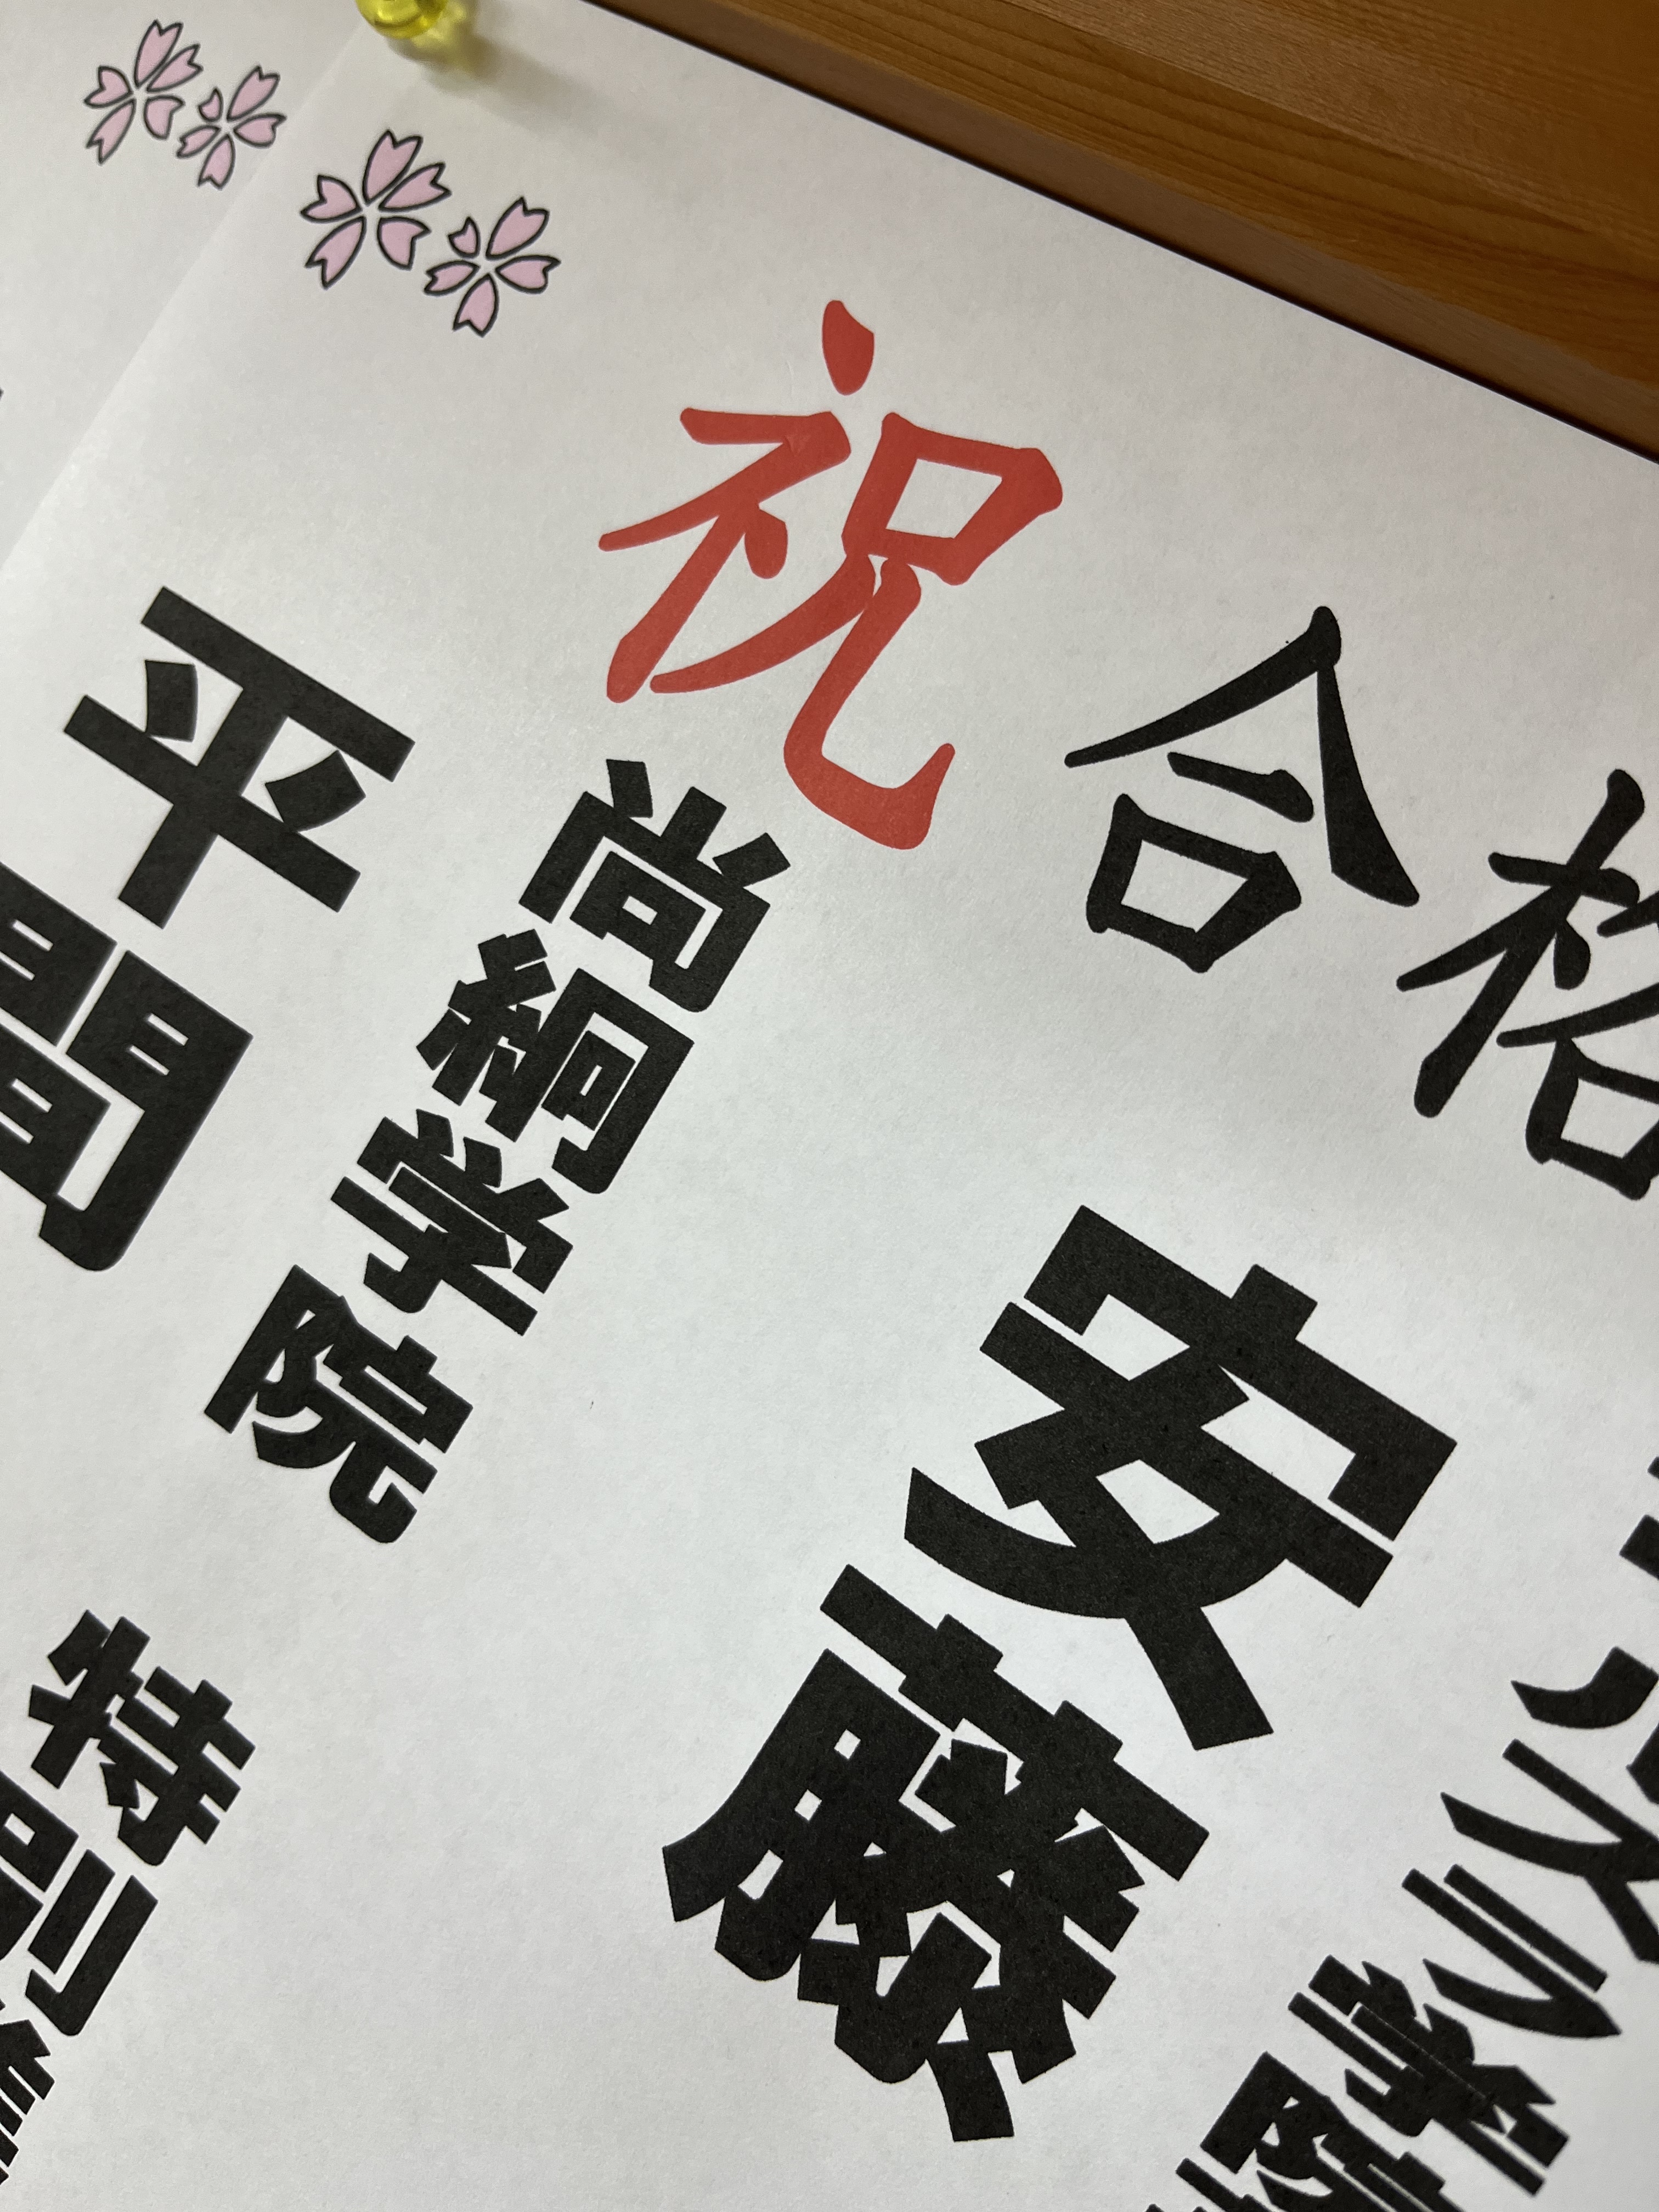 祝合格
安藤
尚絅学院
特別
平間